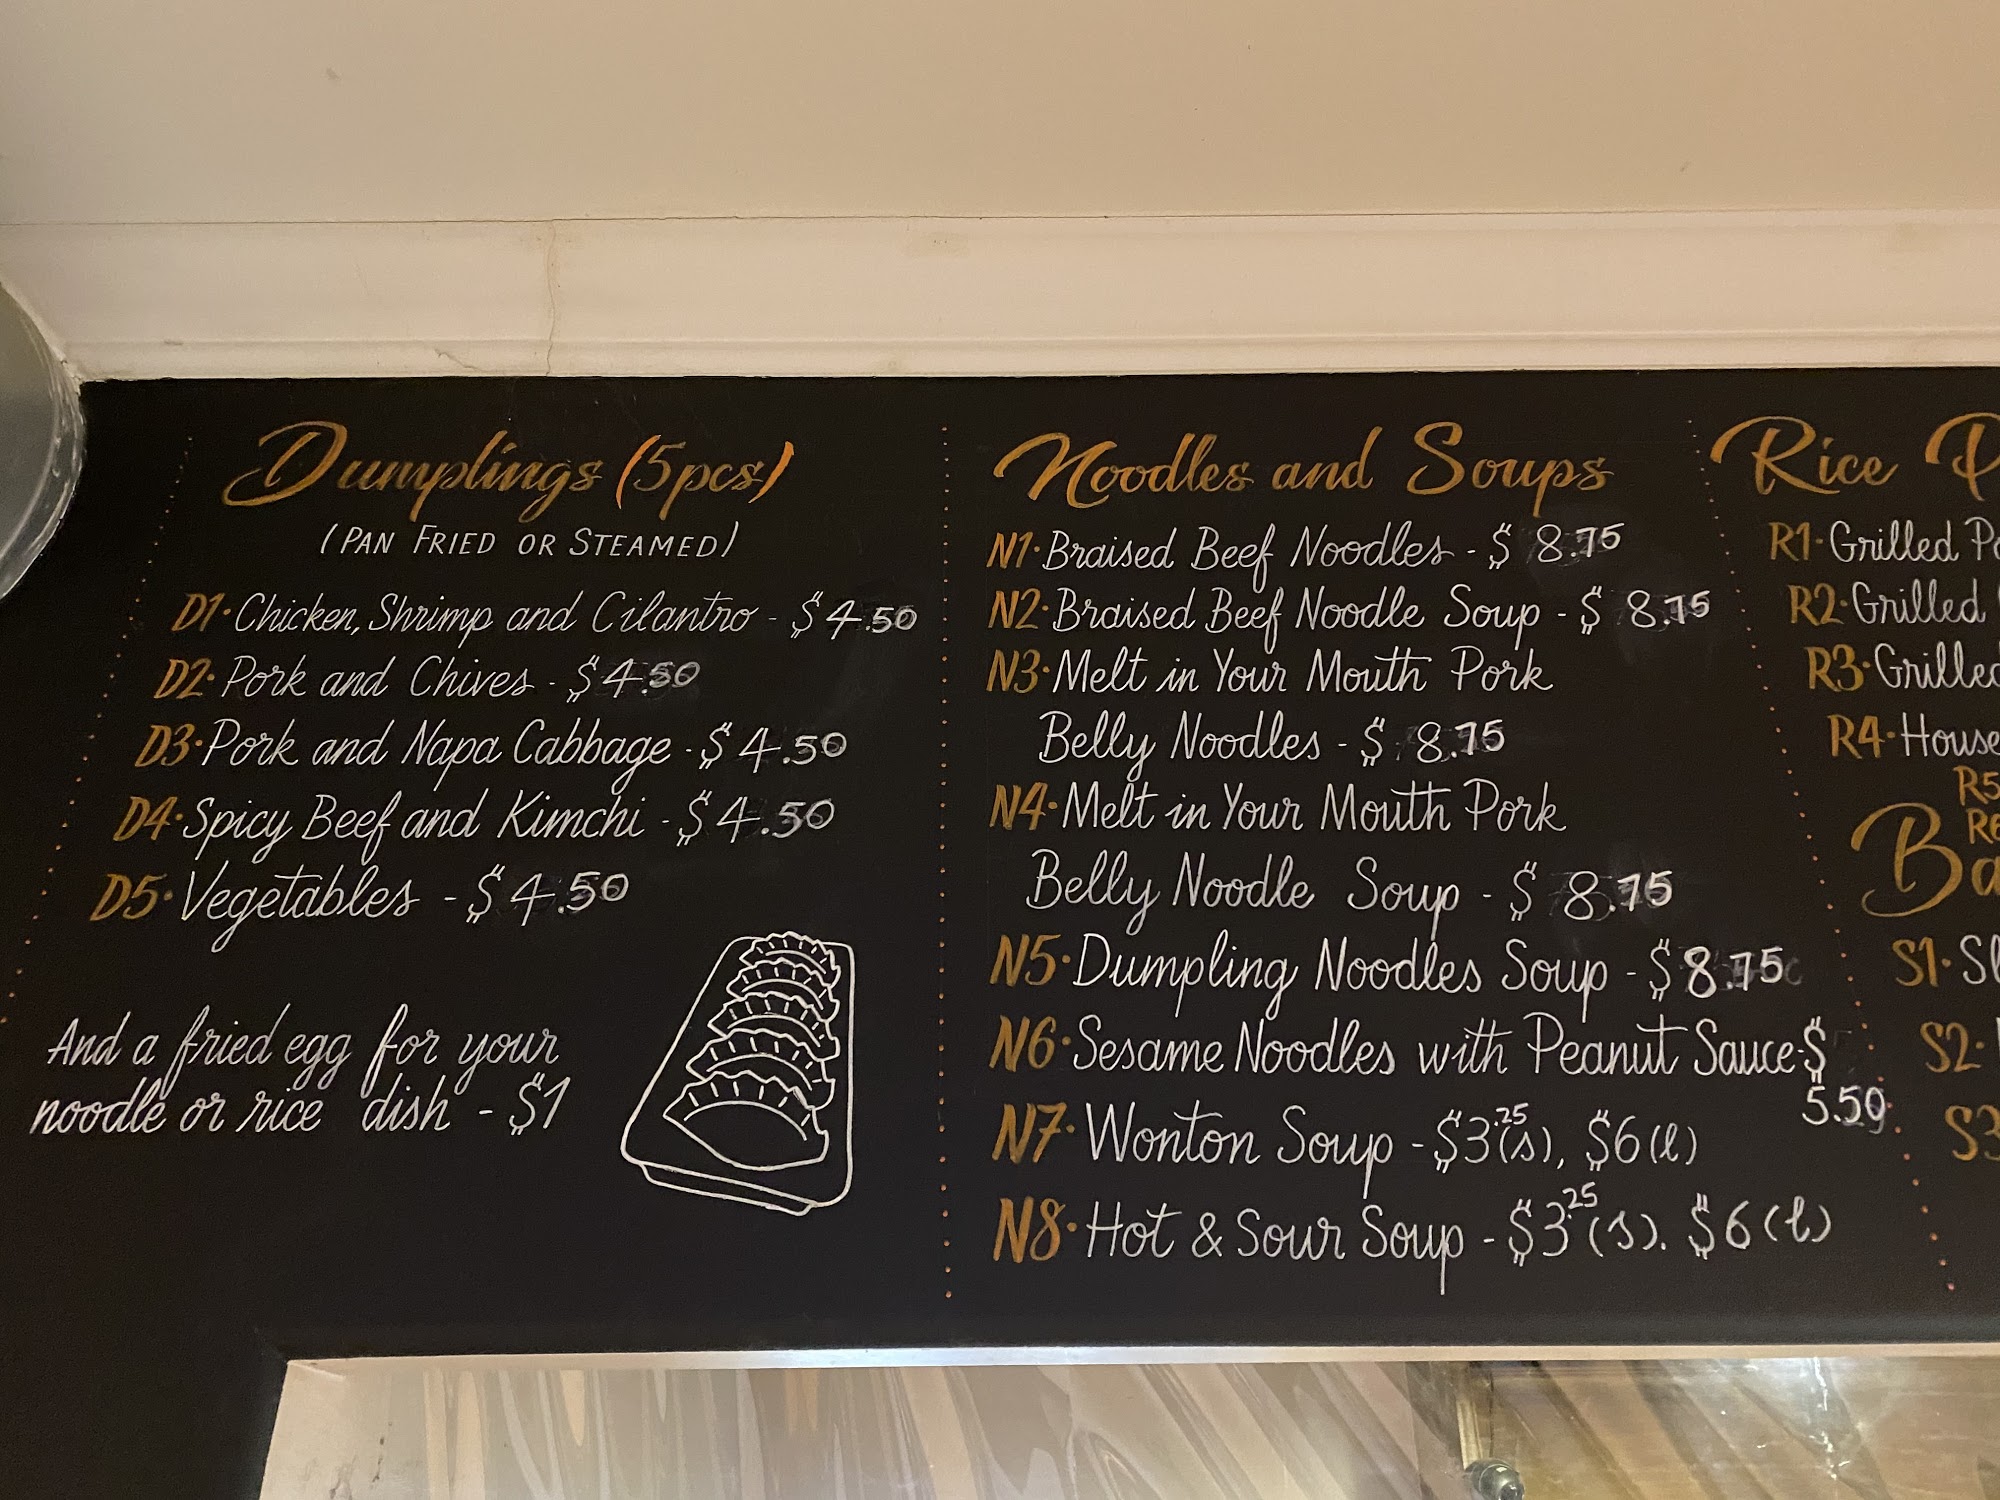 Dumplings (5pcs)
(PAN FRIED OR STEAMED)
D1· Chicken, Shrimp and Cilantro - $4.50
D2· Pork and Chives - $4.50
D3· Pork and Napa Cabbage - $4.50
D4· Spicy Beef and Kimchi - $4.50
D5· Vegetables - $4.50
And a fried egg for your
noodle or rice dish - $1
Noodles and Soups
N1· Braised Beef Noodles - $8.75
N2· Braised Beef Noodle Soup - $8.75
N3· Melt in Your Mouth Pork
Belly Noodles - $8.75
N4· Melt in Your Mouth Pork
Belly Noodle Soup - $8.75
N5· Dumpling Noodles Soup - $8.75
N6· Sesame Noodles with Peanut Sauce - $
5.50
N7· Wonton Soup - $3.25(s), $6(l)
N8· Hot & Sour Soup - $3.25(s). $6(l)
Rice
R1· Grilled
R2· Grilled
R3· Grilled
R4· House
R5
R6
Ba
S1·
S2·
S3